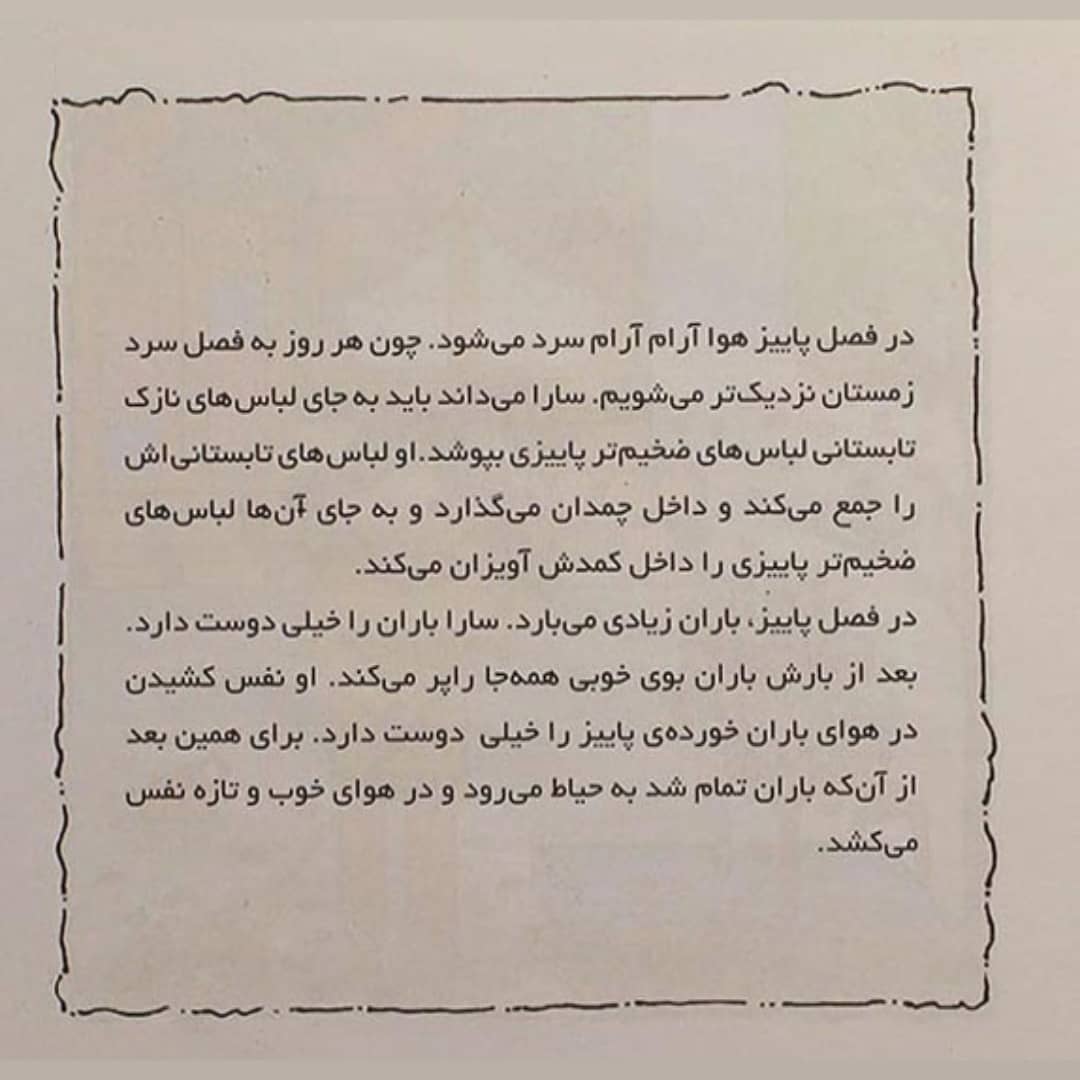 در فصل پاییز هوا آرام آرام سرد می‌شود. چون هر روز به فصل سرد
زمستان نزدیک‌تر می‌شویم. سارا می‌داند باید به جای لباس‌های نازک
تابستانی لباس‌های ضخیم‌تر پاییزی بپوشد.او لباس‌های تابستانی‌اش
را جمع می‌کند و داخل چمدان می‌گذارد و به جای آن‌ها لباس‌های
ضخیم‌تر پاییزی را داخل کمدش آویزان می‌کند.
در فصل پاییز، باران زیادی می‌بارد. سارا باران را خیلی دوست دارد.
بعد از بارش باران بوی خوبی همه‌جا راپر می‌کند. او نفس کشیدن
در هوای باران خورده‌ی پاییز را خیلی دوست دارد. برای همین بعد
از آن‌که باران تمام شد به حیاط می‌رود و در هوای خوب و تازه نفس
می‌کشد.